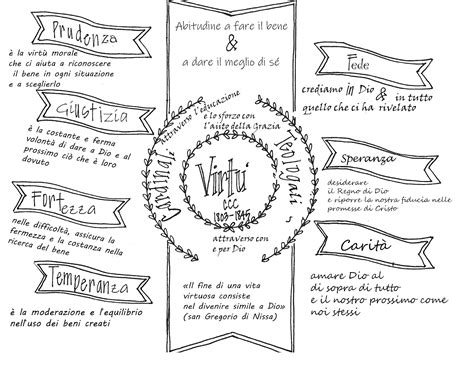 Prudenza
è la virtù morale
che ci aiuta a riconoscere
il bene in ogni situazione
e a sceglierlo
Giustizia
è la costante e ferma
volontà di dare a Dio e al
prossimo ciò che è loro
dovuto
Fortezza
nelle difficoltà, assicura la
fermezza e la costanza nella
ricerca del bene
Temperanza
è la moderazione e l'equilibrio
nell'uso dei beni creati
Abitudine a fare il bene
&
a dare il meglio di sé
attraverso l'educazione
e lo sforzo con
l'aiuto della Grazia
Cardinali
Virtu'
CCC
1803-1845
Teologali
attraverso con
e per Dio
«Il fine di una vita
virtuosa consiste
nel divenire simile a Dio»
(san Gregorio di Nissa)
Fede
crediamo in Dio
& in tutto
quello che ci ha rivelato
Speranza
desiderare
il Regno di Dio
e riporre la nostra fiducia nelle
promesse di Cristo
Carità
amare Dio al
di sopra di tutto
e il nostro prossimo come
noi stessi